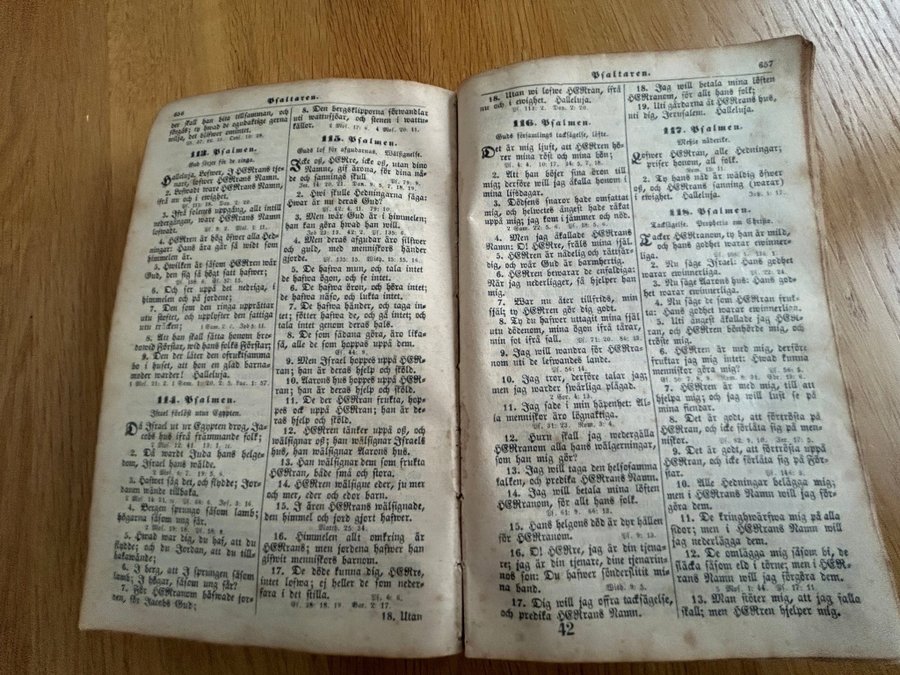 656
Psaltaren.
skall han bine tillsamman, och
wilja, det blifwer omintet.
113. Psalmen.
Gud sörjer för de ringa.
Halleluja. Lofwer, I HERrans tje-
nare, lofwer HERrans Namn.
2. Lofwadt ware HERrans Namn,
ifrå nu och i ewighet.
3. Ifrå solenes uppgång, allt intill
nedergången, ware HERrans Namn
lofwadt.
4. HERren är hög öfwer alla Hed-
ningar; Hans ära går så widt som
himmelen är.
5. Hwilken är såsom HERren wår
Gud, den sig så högt satt hafwer;
6. Och ser uppå det nedriga, i
himmelen och på jordene;
7. Den som den ringa upprättar
utu stoftet, och upplyfter den fattiga
utu träcken;
8. Att han skall sätta honom bre-
dewid Förstar, wid hans folks Förstar;
9. Den der låter den ofruktsamma
bo i huset, att hon en glad barna-
moder warder! Halleluja.
114. Psalmen.
Israel förlöst utur Egypten.
Då Israel ut ur Egypten drog, Ja-
cobs hus ifrå främmande folk;
2. Då wardt Juda hans helge-
dom, Israel hans wälde.
3. Hafwet såg det, och flydde; Jor-
danen wände tillbaka.
4. Bergen sprungo såsom lamb;
högarna såsom ung får.
5. Hwad war dig, du haf, att du
flydde; och du Jordan, att du till-
bakawände;
6. I berg, att I sprungen såsom
lamb; I högar, såsom ung får?
7. För HERranom bäfwade jor-
den, för Jacobs Gud;
8. Den bergsklipporna förwandlar
uti wattusjöar, och stenen i wattu-
källor.
115. Psalmen.
Guds lof för afgudarnas. Wälsignelse.
Icke oß, HERre, icke oß, utan dino
Namne, gif ärona, för dina nå-
de och sannings skull
2. Hwi skulle Hedningarna säga:
Hwar är nu deras Gud?
3. Men wår Gud är i himmelen;
han kan göra hwad han will.
4. Men deras afgudar äro silfwer
och guld, med menniskors händer
gjorde.
5. De hafwa mun, och tala intet
de hafwa ögon, och se intet.
6. De hafwa öron, och höra intet;
de hafwa näso, och lukta intet.
7. De hafwa händer, och taga in-
tet; fötter hafwa de, och gå intet; och
tala intet genom deras hals.
8. De som sådana göra, äro lika-
så, alle de som hoppas uppå dem.
9. Men Israel hoppes uppå HER-
ran; han är deras hjelp och sköld.
10. Aarons hus hoppes uppå HER-
ran; han är deras hjelp och sköld.
11. De der HERran frukta, hop-
pes ock uppå HERran; han är de-
ras hjelp och sköld.
12. HERren tänker uppå oß, och
wälsignar oß; han wälsignar Israels
hus, han wälsignar Aarons hus.
13. Han wälsignar dem som frukta
HERran, både små och stora.
14. HERren wälsigne eder, ju mer
och mer, eder och edor barn.
15. I ären HERrans wälsignade,
den himmel och jord gjort hafwer.
16. Himmelen allt omkring är
HERrans; men jordena hafwer han
gifwit menniskors barnom.
17. De döde kunna dig, HERre,
intet lofwa; ej heller de som neder-
fara i det stilla.
18. Utan
Psaltaren.
657
18. Utan wi lofwe HERran, ifrå
nu och i ewighet. Halleluja.
116. Psalmen.
Guds församlings tacksägelse, löfte.
Det är mig ljuft, att HERren hö-
rer mina röst och mina bön;
2. Att han böjer sina öron till
mig; derföre will jag åkalla honom i
mina lifsdagar.
3. Dödsens snaror hade omfattat
mig, och helwetes ångest hade råkat
uppå mig; jag kom i jämmer och nöd.
4. Men jag åkallade HERrans
Namn: O! HERre, fräls mina själ.
5. HERren är nådelig och rättfär-
dig, och wår Gud är barmhertig.
6. HERren bewarar de enfaldiga:
När jag nederligger, så hjelper han
mig.
7. War nu åter tillfreds, min
själ; ty HERren gör dig godt.
8. Ty du hafwer uttagit mina själ
utu dödenom, mina ögon ifrå tårar,
min fot ifrå fall.
9. Jag will wandra för HERra-
nom uti de lefwandes lande.
10. Jag tror, derföre talar jag;
men jag warder swårliga plågad.
11. Jag sade i min häpenhet: Al-
la menniskor äro lögnaktiga.
12. Huru skall jag wedergälla
HERranom alla hans wälgerningar,
som han mig gör?
13. Jag will taga den helsosamma
kalken, och predika HERrans Namn.
14. Jag will betala mina löften
HERranom, för allt hans folk.
15. Hans helgons död är dyr hållen
för HERranom.
16. O! HERre, jag är din tjena-
re; jag är din tjenare, dine tjenarin-
nos son: Du hafwer sönderslitit mi-
na band.
17. Dig will jag offra tacksägelse,
och predika HERrans Namn.
42
18. Jag will betala mina löften
HERranom, för allt hans folk;
19. Uti gårdarna åt HERrans hus,
uti dig, Jerusalem. Halleluja.
117. Psalmen.
Messie nåderike.
Lofwer HERran, alle Hedningar;
priser honom, all folk.
2. Ty hans nåd är wäldig öfwer
oß, och HERrans sanning (warar)
i ewighet. Halleluja.
118. Psalmen.
Tacksägelse. Prophetie om Christo.
Tacker HERranom, ty han är mild,
och hans godhet warar ewinner-
liga.
2. Nu säge Israel: Hans godhet
warar ewinnerliga.
3. Nu säge Aarons hus: Hans god-
het warar ewinnerliga.
4. Nu säge de som HERran fruk-
ta: Hans godhet warar ewinnerliga.
5. Uti ångest åkallade jag HER-
ran, och HERren bönhörde mig, och
tröste mig.
6. HERren är med mig, derföre
fruktar jag mig intet: Hwad kunna
menniskor göra mig?
7. HERren är med mig, till att
hjelpa mig; och jag will lust se på
mina fiendar.
8. Det är godt, att förtrösta på
HERran, och icke förlåta sig på men-
niskor.
9. Det är godt, att förtrösta uppå
HERran, och icke förlåta sig på För-
star.
10. Alle Hedningar belägga mig;
men i HERrans Namn will jag för-
göra dem.
11. De kringhwärfwa mig på alla
sidor; men i HERrans Namn will
jag nederlägga dem.
12. De omlägga mig såsom bi, de
släcka såsom eld i törne; men i HER-
rans Namn will jag förgöra dem.
13. Man stöter mig, att jag falla
skall; men HERren hjelper mig.